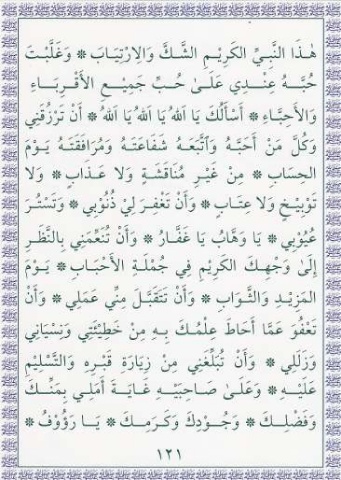 هٰذَا النَّبِيِّ الْكَرِيْمِ الشَّكَّ وَالِارْتِيَابَ ۞ وَغَلَّبْتَ
حُبَّهُ عِنْدِي عَلَىٰ حُبِّ جَمِيْعِ الْأَقْرِبَاءِ
وَالْأَحِبَّاءِ ۞ أَسْأَلُكَ يَا اَللهُ يَا اَللهُ يَا اَللهُ ۞ أَنْ تَرْزُقَنِي
وَكُلَّ مَنْ أَحَبَّهُ وَاتَّبَعَهُ شَفَاعَتَهُ وَمُرَافَقَتَهُ يَوْمَ
الْحِسَابِ ۞ مِنْ غَيْرِ مُنَاقَشَةٍ وَلَا عَذَابٍ ۞ وَلَا
تَوْبِيْخٍ وَلَا عِتَابٍ ۞ وَأَنْ تَغْفِرَ لِيْ ذُنُوْبِي ۞ وَتَسْتُرَ
عُيُوْبِي ۞ يَا وَهَّابُ يَا غَفَّارُ ۞ وَأَنْ تُنَعِّمَنِي بِالنَّظَرِ
إِلَىٰ وَجْهِكَ الْكَرِيْمِ فِي جُمْلَةِ الْأَحْبَابِ ۞ يَوْمَ
الْمَزِيْدِ وَالثَّوَابِ ۞ وَأَنْ تَتَقَبَّلَ مِنِّي عَمَلِي ۞ وَأَنْ
تَعْفُوَ عَمَّا أَحَاطَ عِلْمُكَ بِهِ مِنْ خَطِيْئَتِي وَنِسْيَانِي
وَزَلَلِي ۞ وَأَنْ تُبَلِّغَنِي مِنْ زِيَارَةِ قَبْرِهِ وَالتَّسْلِيْمِ
عَلَيْهِ ۞ وَعَلَىٰ صَاحِبَيْهِ غَايَةَ أَمَلِي بِمَنِّكَ
وَفَضْلِكَ ۞ وَجُوْدِكَ وَكَرَمِكَ ۞ يَا رَؤُوْفُ ۞
١٢١